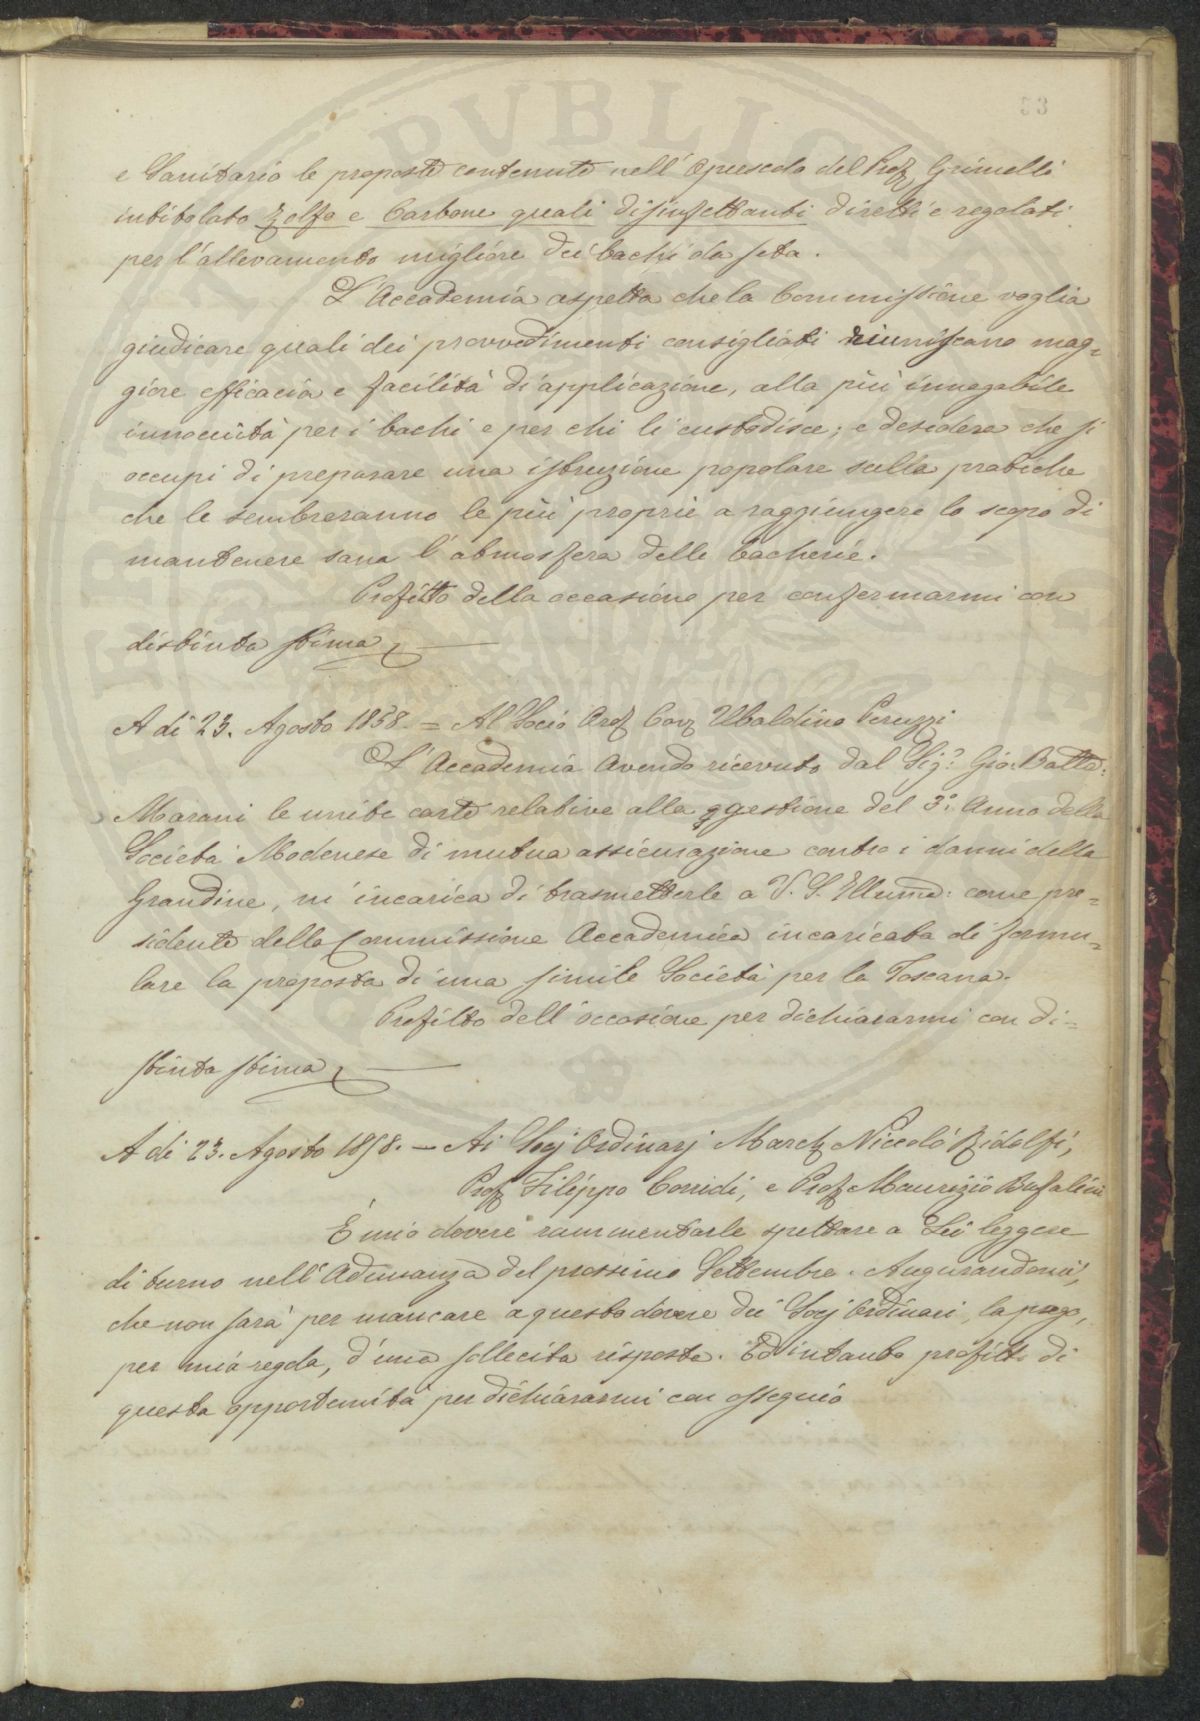 53
e Sanitario le proposte contenute nell'Opuscolo del Prof Grimelli
intitolato Zolfo e Carbone quali disinfettanti diretti e regolati
per l'allevamento migliore dei bachi da seta.
L'Accademia aspetta che la Commissione voglia
giudicare quali dei provvedimenti consigliati riuniscano mag=
giore efficacia e facilità di applicazione, alla più innegabile
innocuità per i bachi e per chi li custodisce; e desidera che si
occupi di preparare una istruzione popolare sulle pratiche
che le sembreranno le più proprie a raggiungere lo scopo di
mantenere sana l'atmosfera delle bacherie.
Profitto della occasione per confermarmi con
distinta stima
A dì 23. Agosto 1858. = Al Socio Prof Cav Ubaldino Peruzzi
L'Accademia avendo ricevuto dal Sig.r Gio: Batta:
Marani le unite carte relative alla gestione del 3.o Anno della
Società Modenese di mutua assicurazione contro i danni della
Grandine, mi incarica di trasmetterle a V. S. Illuma: come pre=
sidente della Commissione Accademica incaricata di formu=
lare la proposta di una simile Società per la Toscana.
Profitto dell'occasione per dichiararmi con di=
stinta stima
A dì 23. Agosto 1858. — Ai Socj Ordinarj March Niccolò Ridolfi,
Prof Filippo Corridi, e Prof Maurizio Bufalini
È mio dovere rammentarle spettare a Lei leggere
di turno nell'Adunanza del prossimo Settembre. Augurandomi,
che non sarà per mancare a questo dovere dei Socj Ordinari, la prego,
per mia regola, d'una sollecita risposta. Ed intanto profitto di
questa opportunità per dichiararmi con ossequio